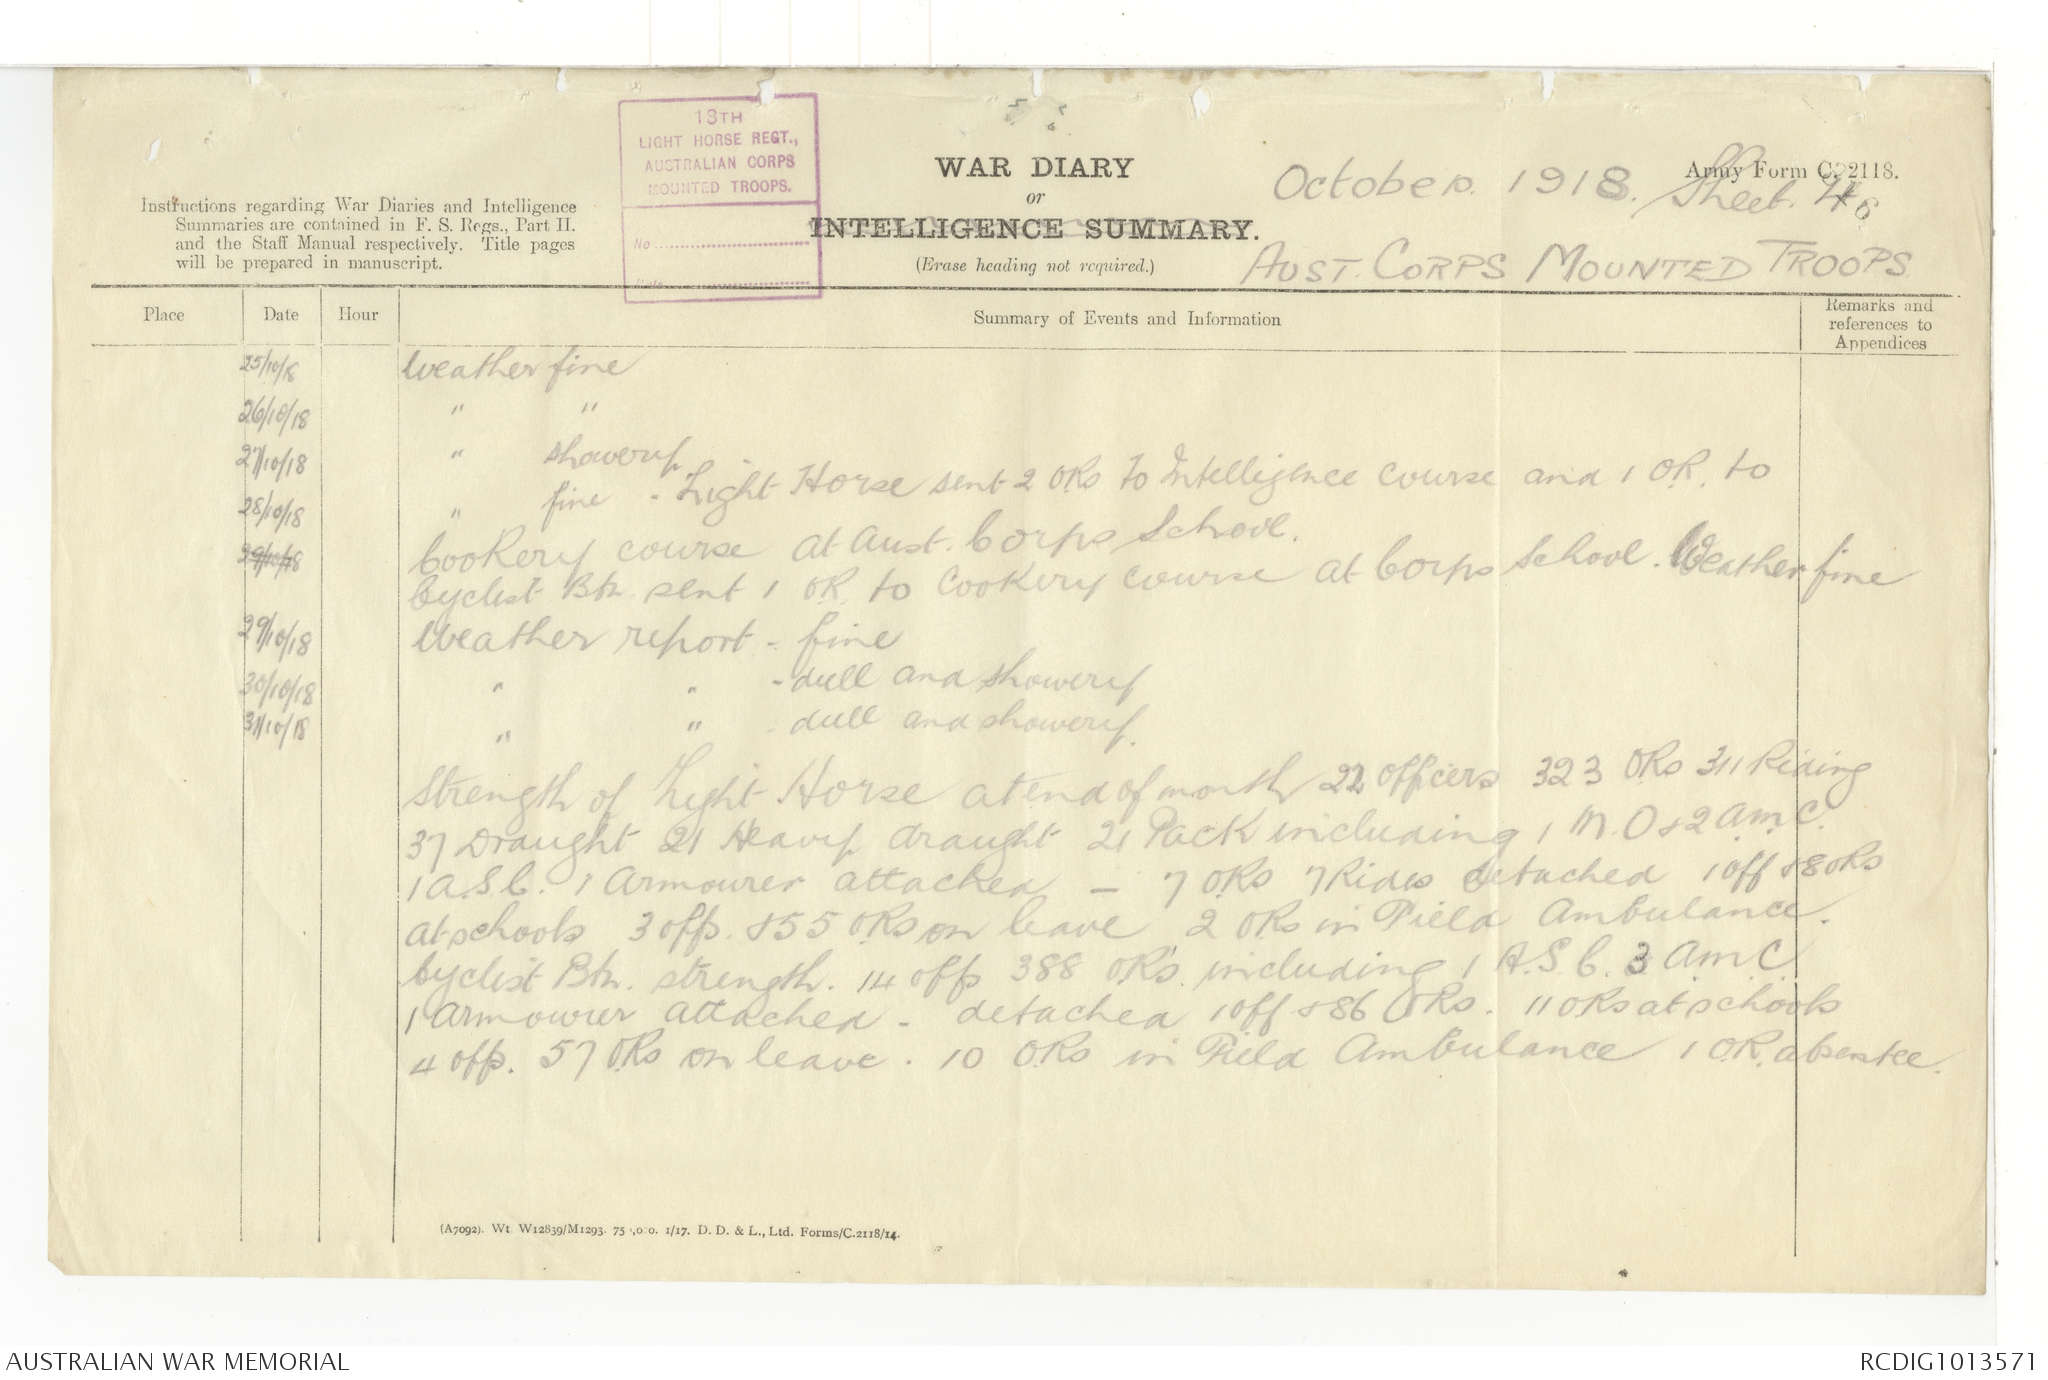 13TH
LIGHT HORSE REGT.,
AUSTRALIAN CORPS
MOUNTED TROOPS.
No
Date
Instructions regarding War Diaries and Intelligence
Summaries are contained in F. S. Regs., Part II.
and the Staff Manual respectively. Title pages
will be prepared in manuscript.
WAR DIARY
or
INTELLIGENCE SUMMARY.
(Erase heading not required.)
Army Form C. 2118.
October. 1918. Sheet.
AUST. CORPS MOUNTED TROOPS
Place Date Hour Summary of Events and Information Remarks and references to Appendices
25/10/18 Weather fine
26/10/18 " "
27/10/18 " showery
28/10/18 " fine - Light Horse sent 2 ORs to Intelligence course and 1 OR. to
Cookery course at Aust. Corps School.
29/10/18 Cyclist Btn. sent 1 OR. to Cookery course at Corps School. Weather fine
29/10/18 Weather report - fine
30/10/18 " " - dull and showery
31/10/18 " " dull and showery.
Strength of Light Horse at end of month 22 officers 323 ORs 311 Riding
37 Draught 21 Heavy draught 21 Pack including 1 M.O & 2 A.M.C.
1 A.S.C. 1 Armourer attached - 7 ORs 7 Rides detached 1 off & 8 ORs
at schools 3 offs. & 55 ORs on leave 2 ORs in Field Ambulance.
Cyclist Btn. strength. 14 offs 388 ORs. including 1 A.S.C. 3 A.M.C
1 Armourer attached - detached 1 off & 86 ORs. 11 ORs at schools
4 offs. 57 ORs on leave. 10 ORs in Field Ambulance 1 O.R. absentee.
(A7092). Wt. W12839/M1293. 1/17. D. D. & L., Ltd. Forms/C.2118/14.
AUSTRALIAN WAR MEMORIAL
RCDIG1013571